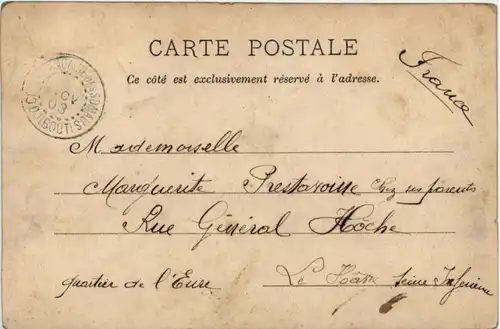 CARTE POSTALE
Ce côté est exclusivement réservé à l'adresse.
France
DJIBOUTI
Mademoiselle
Marguerite Prestavoine chez ses parents
Rue Général Hoche
quartier de l'Eure Le Havre Seine Inférieure